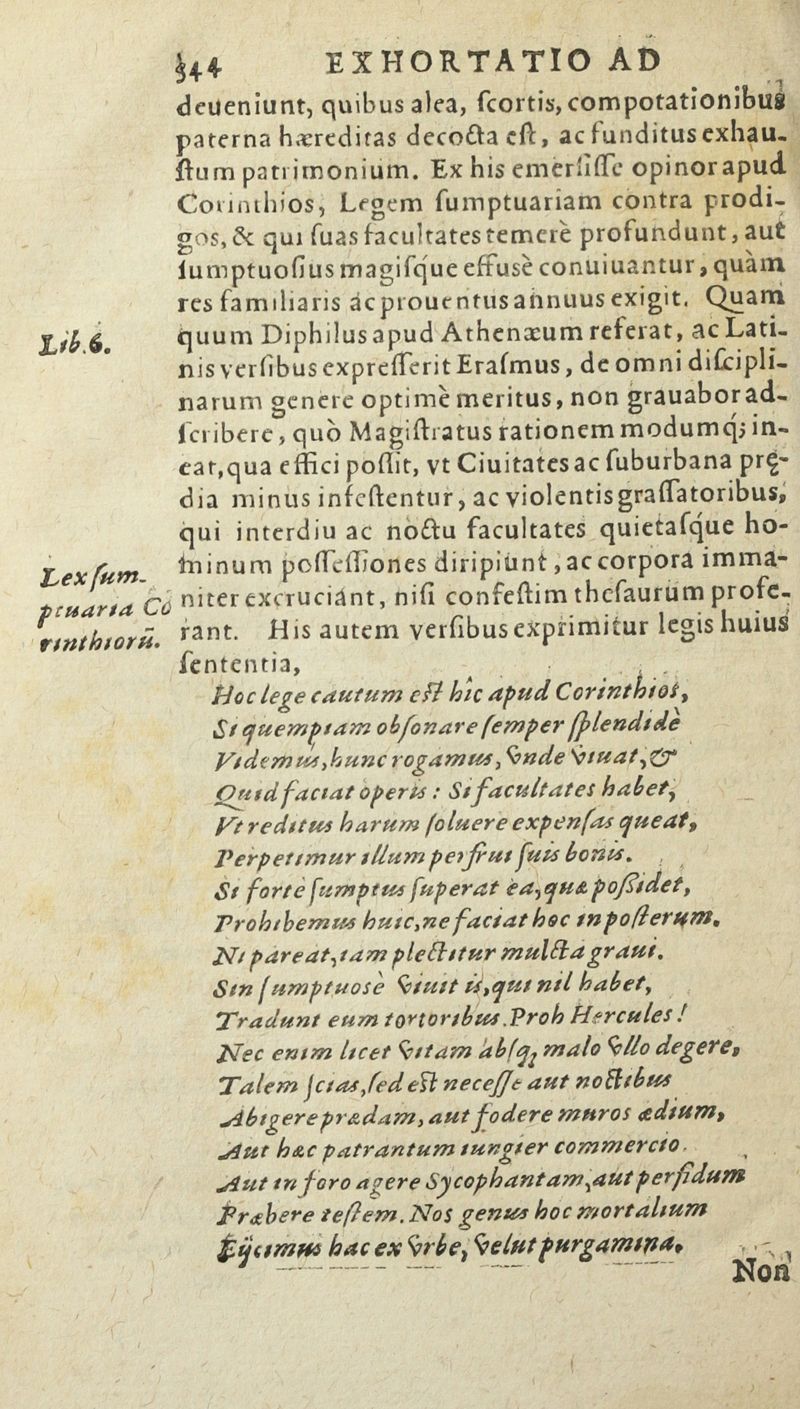 544 EXHORTATIO AD
deueniunt, quibus alea, ſcortis, compotationibus
paterna hæreditas decocta eſt, ac funditus exhau-
ſtum patrimonium. Ex his emerſiſſe opinor apud
Corinthios, Legem ſumptuariam contra prodi-
gos, & qui ſuas facultates temerè profundunt, aut
ſumptuoſius magiſque effusè conuiuantur, quàm
res familiaris ac prouentus annuus exigit. Quam
Lib.6.
quum Diphilus apud Athenæum referat, ac Lati-
nis verſibus expreſſerit Eraſmus, de omni diſcipli-
narum genere optimè meritus, non grauabor ad-
ſcribere, quò Magiſtratus rationem modumq; in-
eat, qua effici poſſit, vt Ciuitates ac ſuburbana prę-
dia minus infeſtentur, ac violentis graſſatoribus,
qui interdiu ac noctu facultates quietaſque ho-
minum poſſeſſiones diripiunt, ac corpora imma-
Lex ſum-
ptuaria Co
rinthiorū.
niter excruciant, niſi confeſtim theſaurum profe-
rant. His autem verſibus exprimitur legis huius
ſententia,
Hoc lege cautum eſt hîc apud Corinthios,
Si quempiam obſonare ſemper ſplendidè
Videmus, hunc rogamus, vnde viuat, &
Quid faciat operis: Si facultates habet,
Vt reditus harum ſoluere expenſas queat,
Perpetimur illum perfrui ſuis bonis.
Si fortè ſumptus ſuperat ea, quæ poſsidet,
Prohibemus huic, ne faciat hoc in poſterum.
Ni pareat, iam plectitur mulcta graui.
Sin ſumptuosè viuit is, qui nil habet,
Tradunt eum tortoribus. Proh Hercules!
Nec enim licet vitam abſq; malo vllo degere,
Talem ſcias, ſed eſt neceſſe aut noctibus
Abigere prædam, aut fodere muros ædium,
Aut hæc patrantum iungier commercio.
Aut in foro agere Sycophantam, aut perfidum
Præbere teſtem. Nos genus hoc mortalium
Eijcimus hac ex vrbe, velut purgamina.
Non